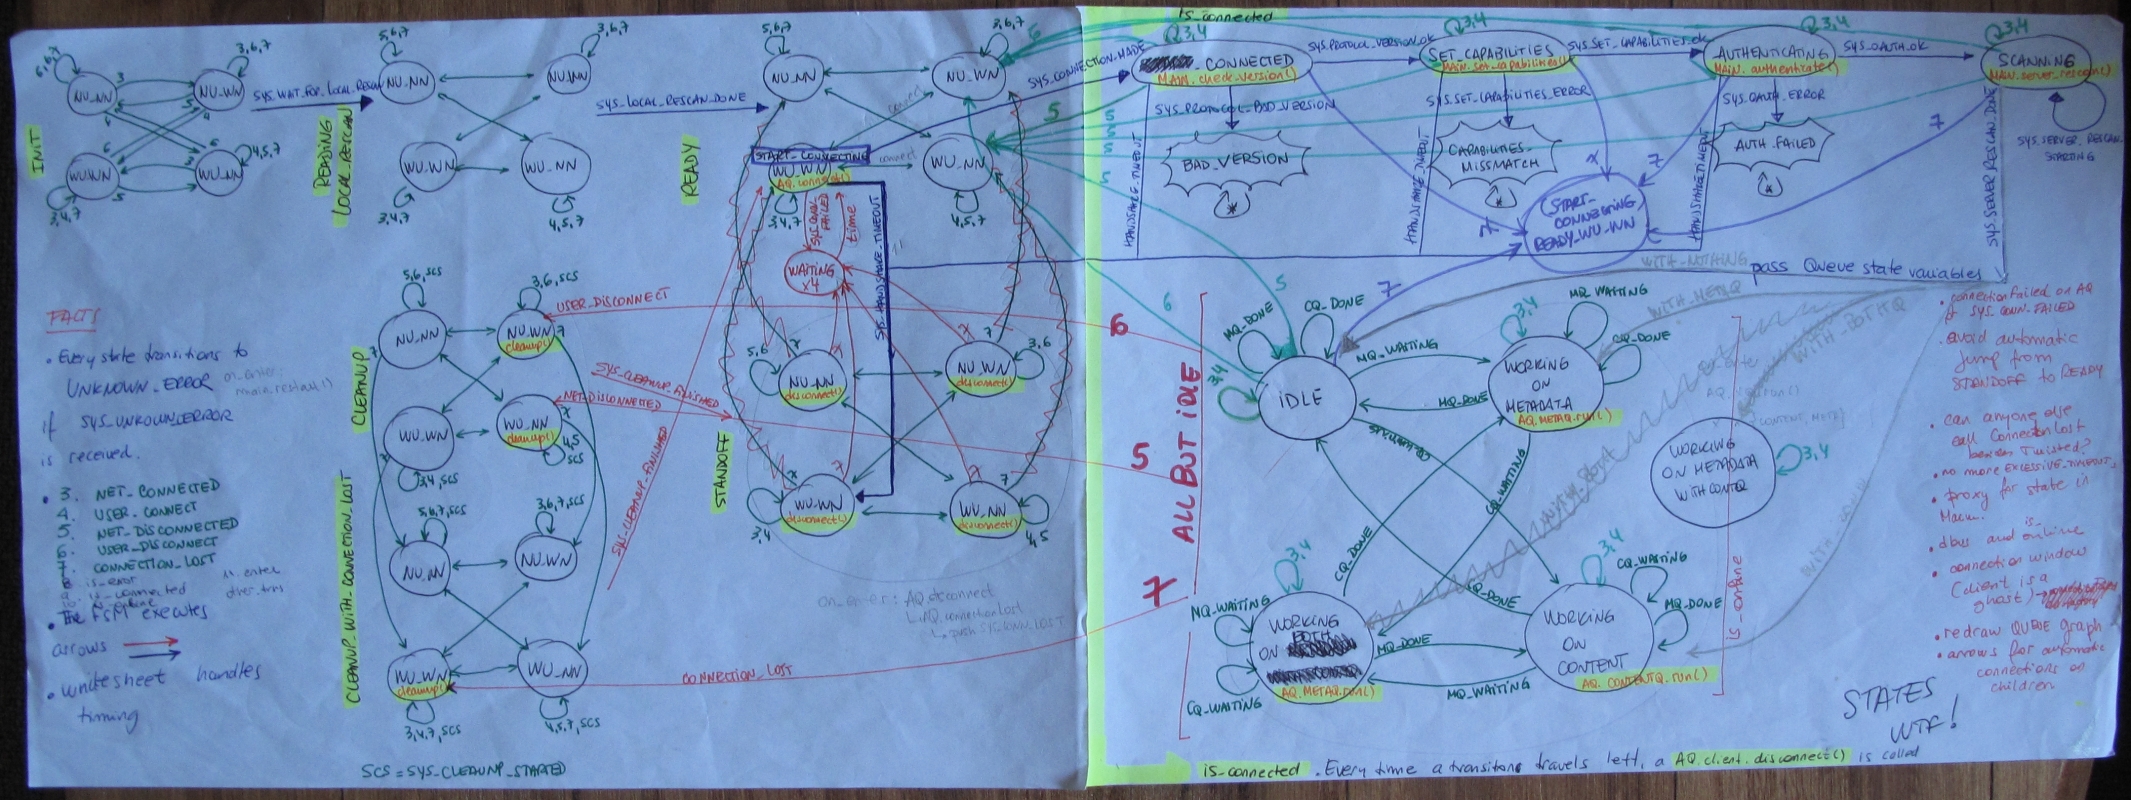 INIT
5,6,7
NU_NN
3
3,6,7
NU_WN
WU_WN
3,4,7
WU_NN
4,5,7
SYS_WAIT_FOR_LOCAL_RESCAN
READING
LOCAL_RESCAN
5,6,7
NU_NN
3,6,7
NU_WN
WU_WN
3,4,7
WU_NN
4,5,7
SYS_LOCAL_RESCAN_DONE
READY
5,6,7
NU_NN
3,6,7
NU_WN
START_CONNECTING
WU_WN
AQ.connect()
3,4,7
WU_NN
4,5,7
connect
SYS_CONN_FAILED
time
WAITING
x4
SYS_HANDSHAKE_TIMEOUT
STANDOFF
5,6
NU_NN
disconnect()
NU_WN
disconnect()
3,6
WU_WN
disconnect()
3,4
WU_NN
disconnect()
4,5
on_enter: AQ.disconnect
FACTS
• Every state transitions to
UNKNOWN_ERROR
on_enter:
main.restart()
if SYS_UNKOWN_ERROR
is received.
• 3. NET_CONNECTED
4. USER_CONNECT
5. NET_DISCONNECTED
6. USER_DISCONNECT
7. CONNECTION_LOST
8 is_error
9 is_connected
10 is_online
• The FSM executes
arrows
• whitesheet handles
timing
CLEANUP
5,6,SCS
NU_NN
3,6,SCS
NU_WN
cleanup()
WU_WN
3,4,SCS
WU_NN
cleanup()
4,5
SCS
CLEANUP_WITH_CONNECTION_LOST
5,6,7,SCS
NU_NN
3,6,7,SCS
NU_WN
WU_WN
cleanup()
3,4,7,SCS
WU_NN
4,5,7,SCS
SCS = SYS_CLEANUP_STARTED
USER_DISCONNECT
SYS_CLEANUP_FINISHED
NET_DISCONNECTED
SYS_CLEANUP_FINISHED
CONNECTION_LOST
is_connected
SYS_CONNECTION_MADE
3,4
_CONNECTED
MAIN.check_version()
SYS_PROTOCOL_VERSION_OK
3,4
SET_CAPABILITIES
MAIN.set_capabilities()
SYS_SET_CAPABILITIES_OK
3,4
AUTHENTICATING
MAIN.authenticate()
SYS_OAUTH_OK
3,4
SCANNING
MAIN.server_rescan()
SYS_PROTOCOL_BAD_VERSION
BAD_VERSION
*
SYS_SET_CAPABILITIES_ERROR
CAPABILITIES_
MISSMATCH
*
SYS_OAUTH_ERROR
AUTH_FAILED
*
SYS_SERVER_RESCAN_
STARTING
HANDSHAKE_TIMEOUT
HANDSHAKE_TIMEOUT
HANDSHAKE TIMEOUT
SYS_SERVER_RESCAN_DONE
START_
CONNECTING
READY_WU_WN
WITH_NOTHING
pass Queue state variables
WITH_METAQ
WITH_BOTHQ
6
5
7
ALL BUT IDLE
MQ_DONE
CQ_DONE
3,4
IDLE
MQ_WAITING
MQ_DONE
3,4
MQ_WAITING
CQ_DONE
WORKING
ON
METADATA
AQ.METAQ.run()
CQ_WAITING
CQ_DONE
CQ_DONE
WORKING
ON METADATA
WITH CONTQ
3,4
3,4
MQ_WAITING
CQ_WAITING
WORKING
ON BOTH
AQ.METAQ.run()
MQ_DONE
MQ_WAITING
3,4
CQ_WAITING
MQ_DONE
WORKING
ON
CONTENT
AQ.CONTENTQ.run()
• connection failed on AQ
SYS_CONN_FAILED
• avoid automatic
jump from
STANDOFF to READY
• can anyone else
call ConnectionLost
besides Twisted?
• no more EXCESSIVE_TIMEOUTS
• proxy for state in
Main.
• dbus and is_online
• connection window
(client is a
ghost)
• redraw QUEUE graph
• arrows for automatic
connections on
children
STATES
WTF!
is_connected. Every time a transitions travels left, a AQ.client.disconnect() is called